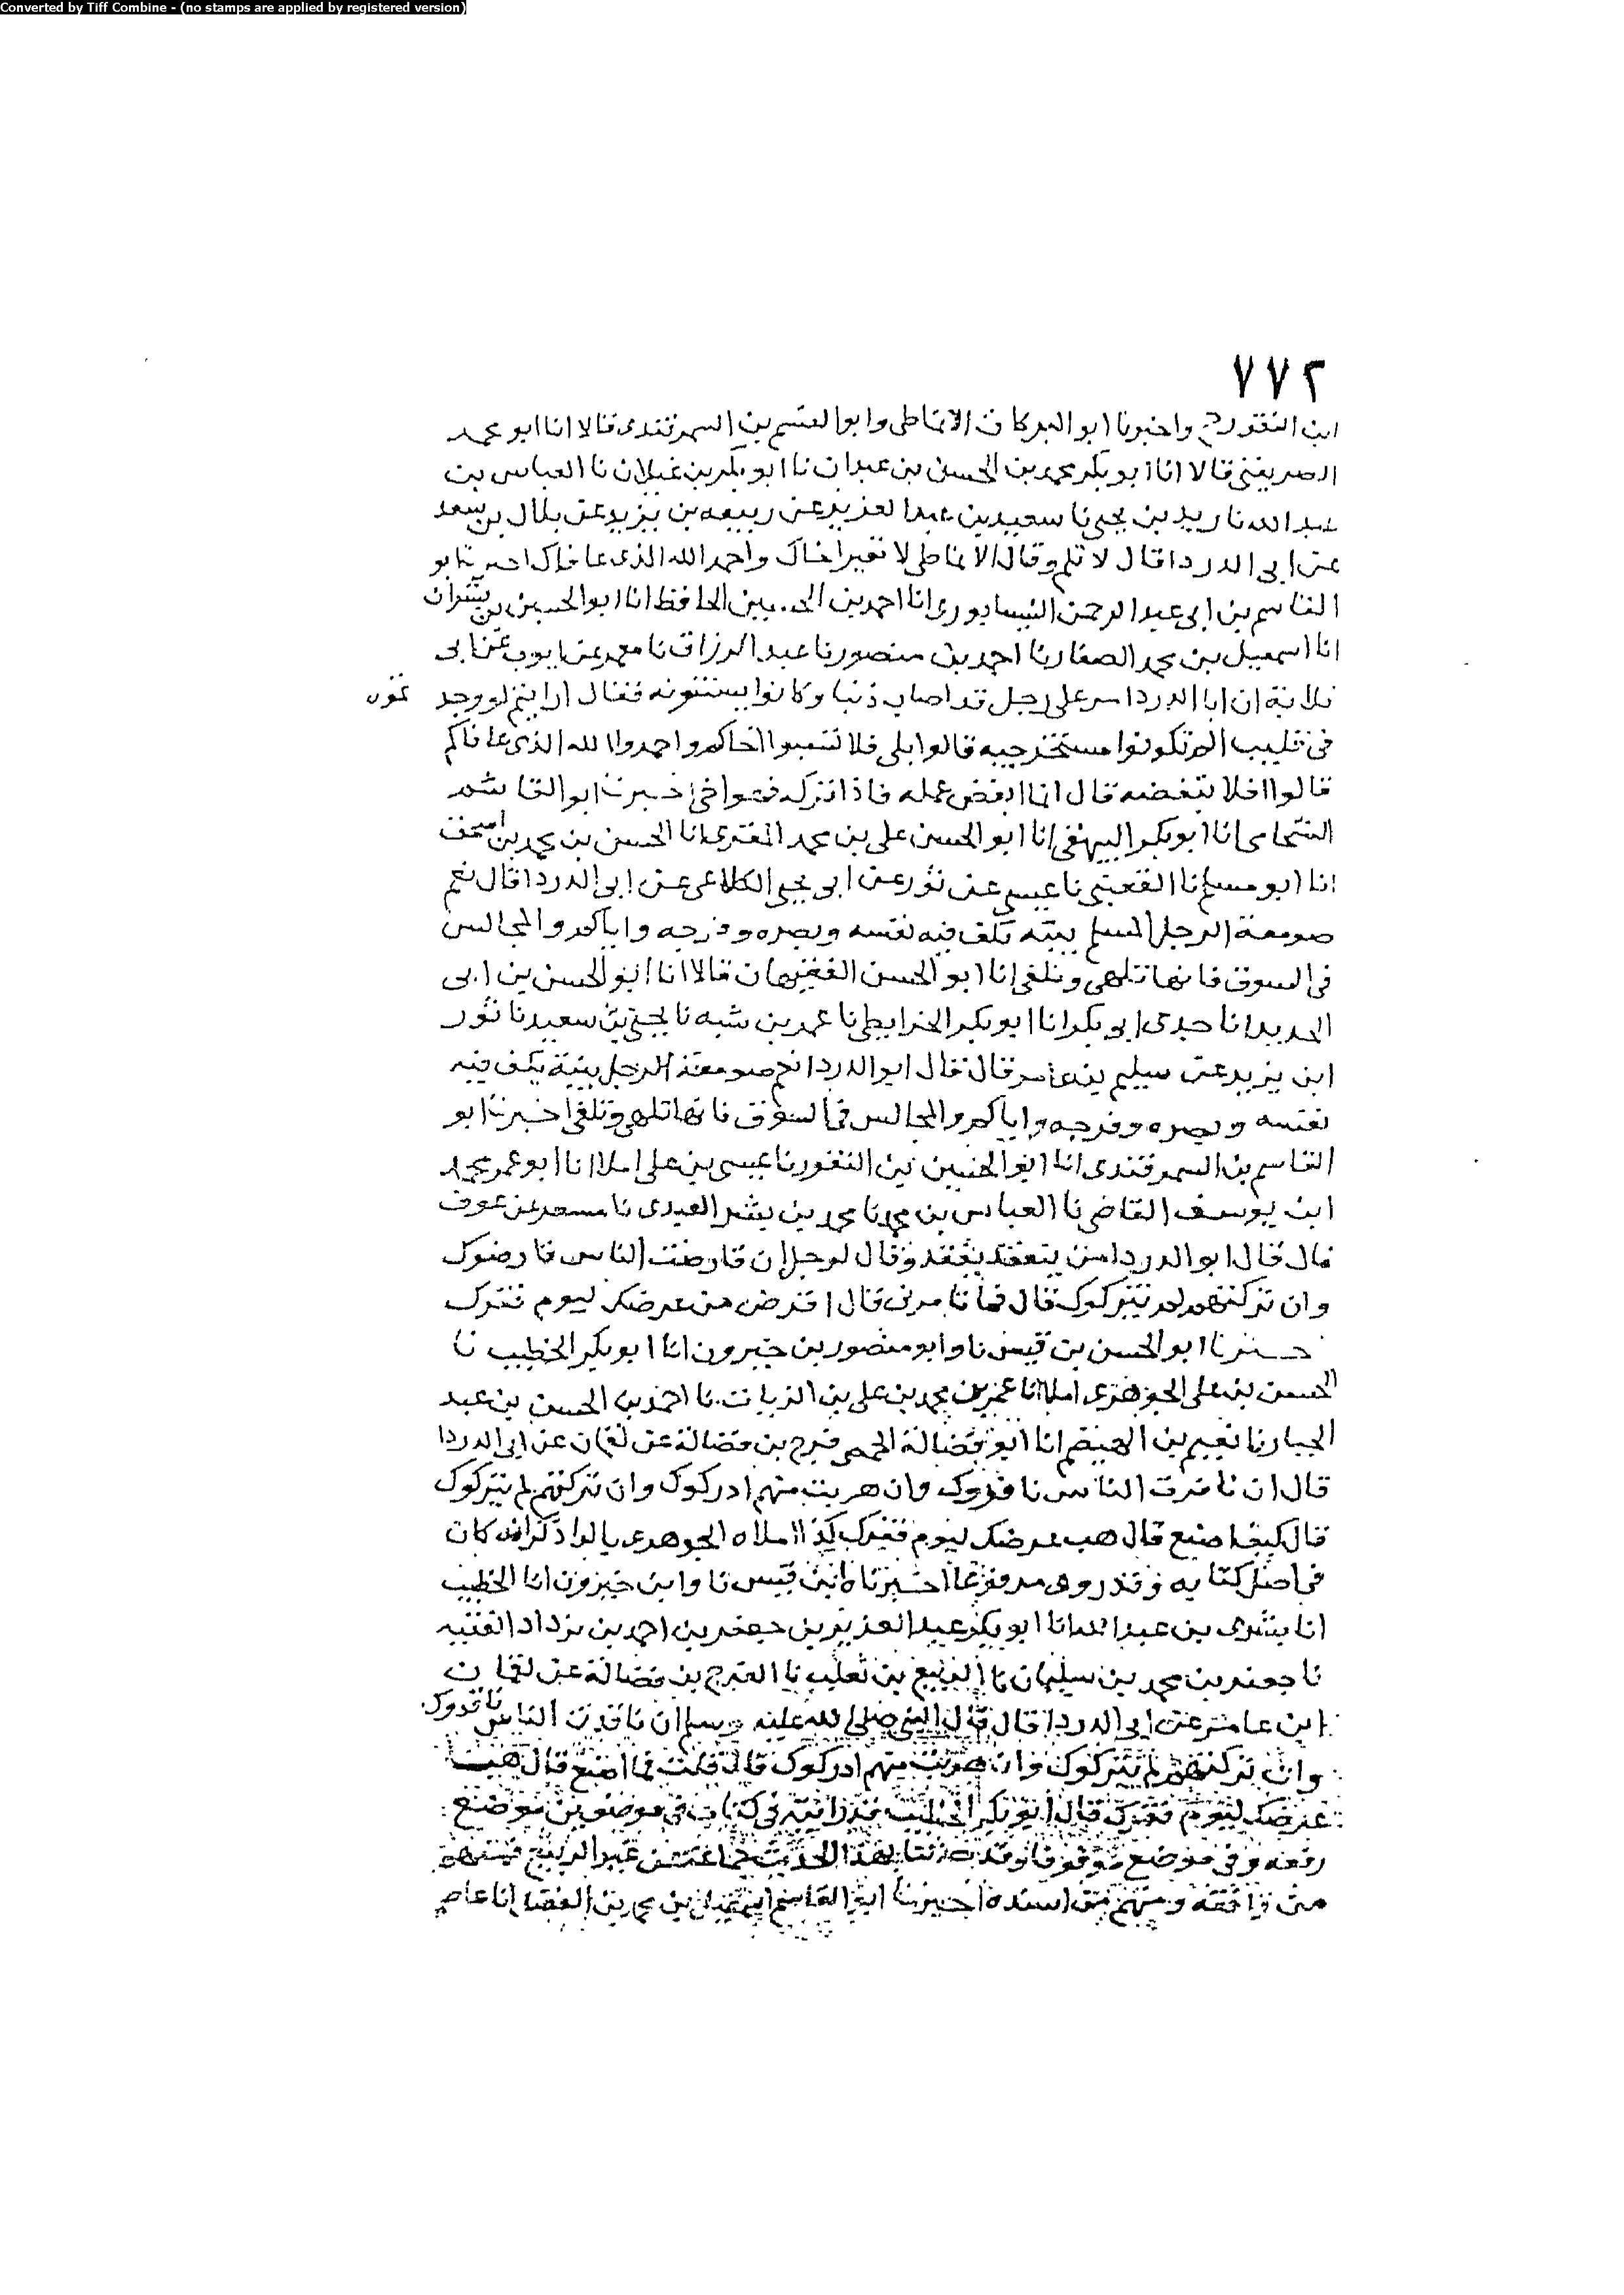 Converted by Tiff Combine - (no stamps are applied by registered version)
٧٧٢
ابن النقور ح واخبرنا ابو البركات الانماطى وابو القسم بن السمرقندى قالا انا ابو محمد
الصريفينى قالا انا ابو بكر محمد بن الحسن بن عبدان نا ابو بكر بن غيلان نا العباس بن
عبد الله نا زيد بن يحيى نا سعيد بن عبد العزيز عن ربيعه بن يزيد عن بلال بن سعد
عن ابى الدردا قال لا تلم وقال الانماطى لا تعير اخاك واحمد الله الذى عافاك اخبرنا ابو
القاسم بن ابى عبد الرحمن النيسابورى انا احمد بن الحسين الحافظ انا ابو الحسين بن بشران
انا اسمعيل بن محمد الصفار نا احمد بن منصور نا عبد الرزاق نا معمر عن ايوب عن ابى
قلابة ان ابا الدردا مر على رجل قد اصاب ذنبا وكانوا يسبونه فقال ارايتم لو وجد تموه
فى قليب الم تكونوا مستخرجيه قالوا بلى فلا تسبوا اخاكم واحمدوا الله الذى عافاكم
قالوا افلا تبغضه قال انا ابغض عمله فاذا تركه فهو اخى اخبرنا ابو القاسم
الشحامى انا ابو بكر البيهقى انا ابو الحسن على بن محمد المقرى انا الحسن بن محمد بن اسحق
انا ابو مسلم نا القعنبى نا عيسى عن ثور عن ابى يحيى الكلاعى عن ابى الدردا قال نعم
صومعة الرجل المسلم بيته يكف فيه نفسه وبصره وفرجه واياكم والمجالس
فى السوق فانها تلهى وتلغى انا ابو الحسن الفقيهان قالا انا ابو الحسن بن ابى
الحديد انا جدى ابو بكر انا ابو بكر الخرايطى نا عمر بن شبه نا يحيى بن سعيد نا ثور
ابن يزيد عن سليم بن عامر قال قال ابو الدردا نعم صومعة الرجل بيته يكف فيه
نفسه وبصره وفرجه واياكم والمجالس فى السوق فانها تلهى وتلغى اخبرنا ابو
القاسم بن السمرقندى انا ابو الحسين بن النقور نا عيسى بن على املا انا ابو عمر محمد
ابن يوسف القاضى نا العباس بن محمد نا محمد بن بشر العبدى نا مسعر عن عوف
قال قال ابو الدردا من يتفقد يفقد وقال لرجل ان قارضت الناس قارضوك
وان تركتهم لم يتركوك قال فما تامرنى قال اقرض من عرضك ليوم فقرك
اخبرنا ابو الحسن بن قبيس نا وابو منصور بن خيرون انا ابو بكر الخطيب نا
الحسن بن على الجوهرى املا انا عمر بن محمد بن على بن الزيات نا احمد بن الحسن بن عبد
الجبار نا نعيم بن الهيضم انا ابو فضالة الحمصى فرج بن فضالة عن لقمان عن ابى الدردا
قال ان ناقرت الناس ناقروك وان هربت منهم ادركوك وان تركتهم لم يتركوك
قال كيف اصنع قال هب عرضك ليوم فقرك كذا املاه الجوهرى بالوا وذكر انه كان
فى اصل كتابه وقد روى مرفوعا اخبرناه ابن قبيس نا وابن خيرون انا الخطيب
انا بشرى بن عبد الله انا ابو بكر عبد العزيز بن جعفر بن احمد بن يزداد الفقيه
نا جعفر بن محمد بن سليمان نا الربيع بن ثعلب نا الفرج بن فضالة عن لقمان
ابن عامر عن ابى الدردا قال قال النبى صلى الله عليه وسلم ان ناقدت الناس ناقدوك
وان تركتهم لم يتركوك وان هربت منهم ادركوك قال قلت فما اصنع قال هب
عرضك ليوم فقرك قال ابو بكر الخطيب قد رايته فى كتاب فى موضعين موضع
رفعه وفى موضع موقوفا وقد بهذا الحديث جماعة عن غير الربيع فمنهم
من وافقه ومنهم من اسنده اخبرنا ابو القاسم اسمعيل بن محمد بن الفضل انا عاصم